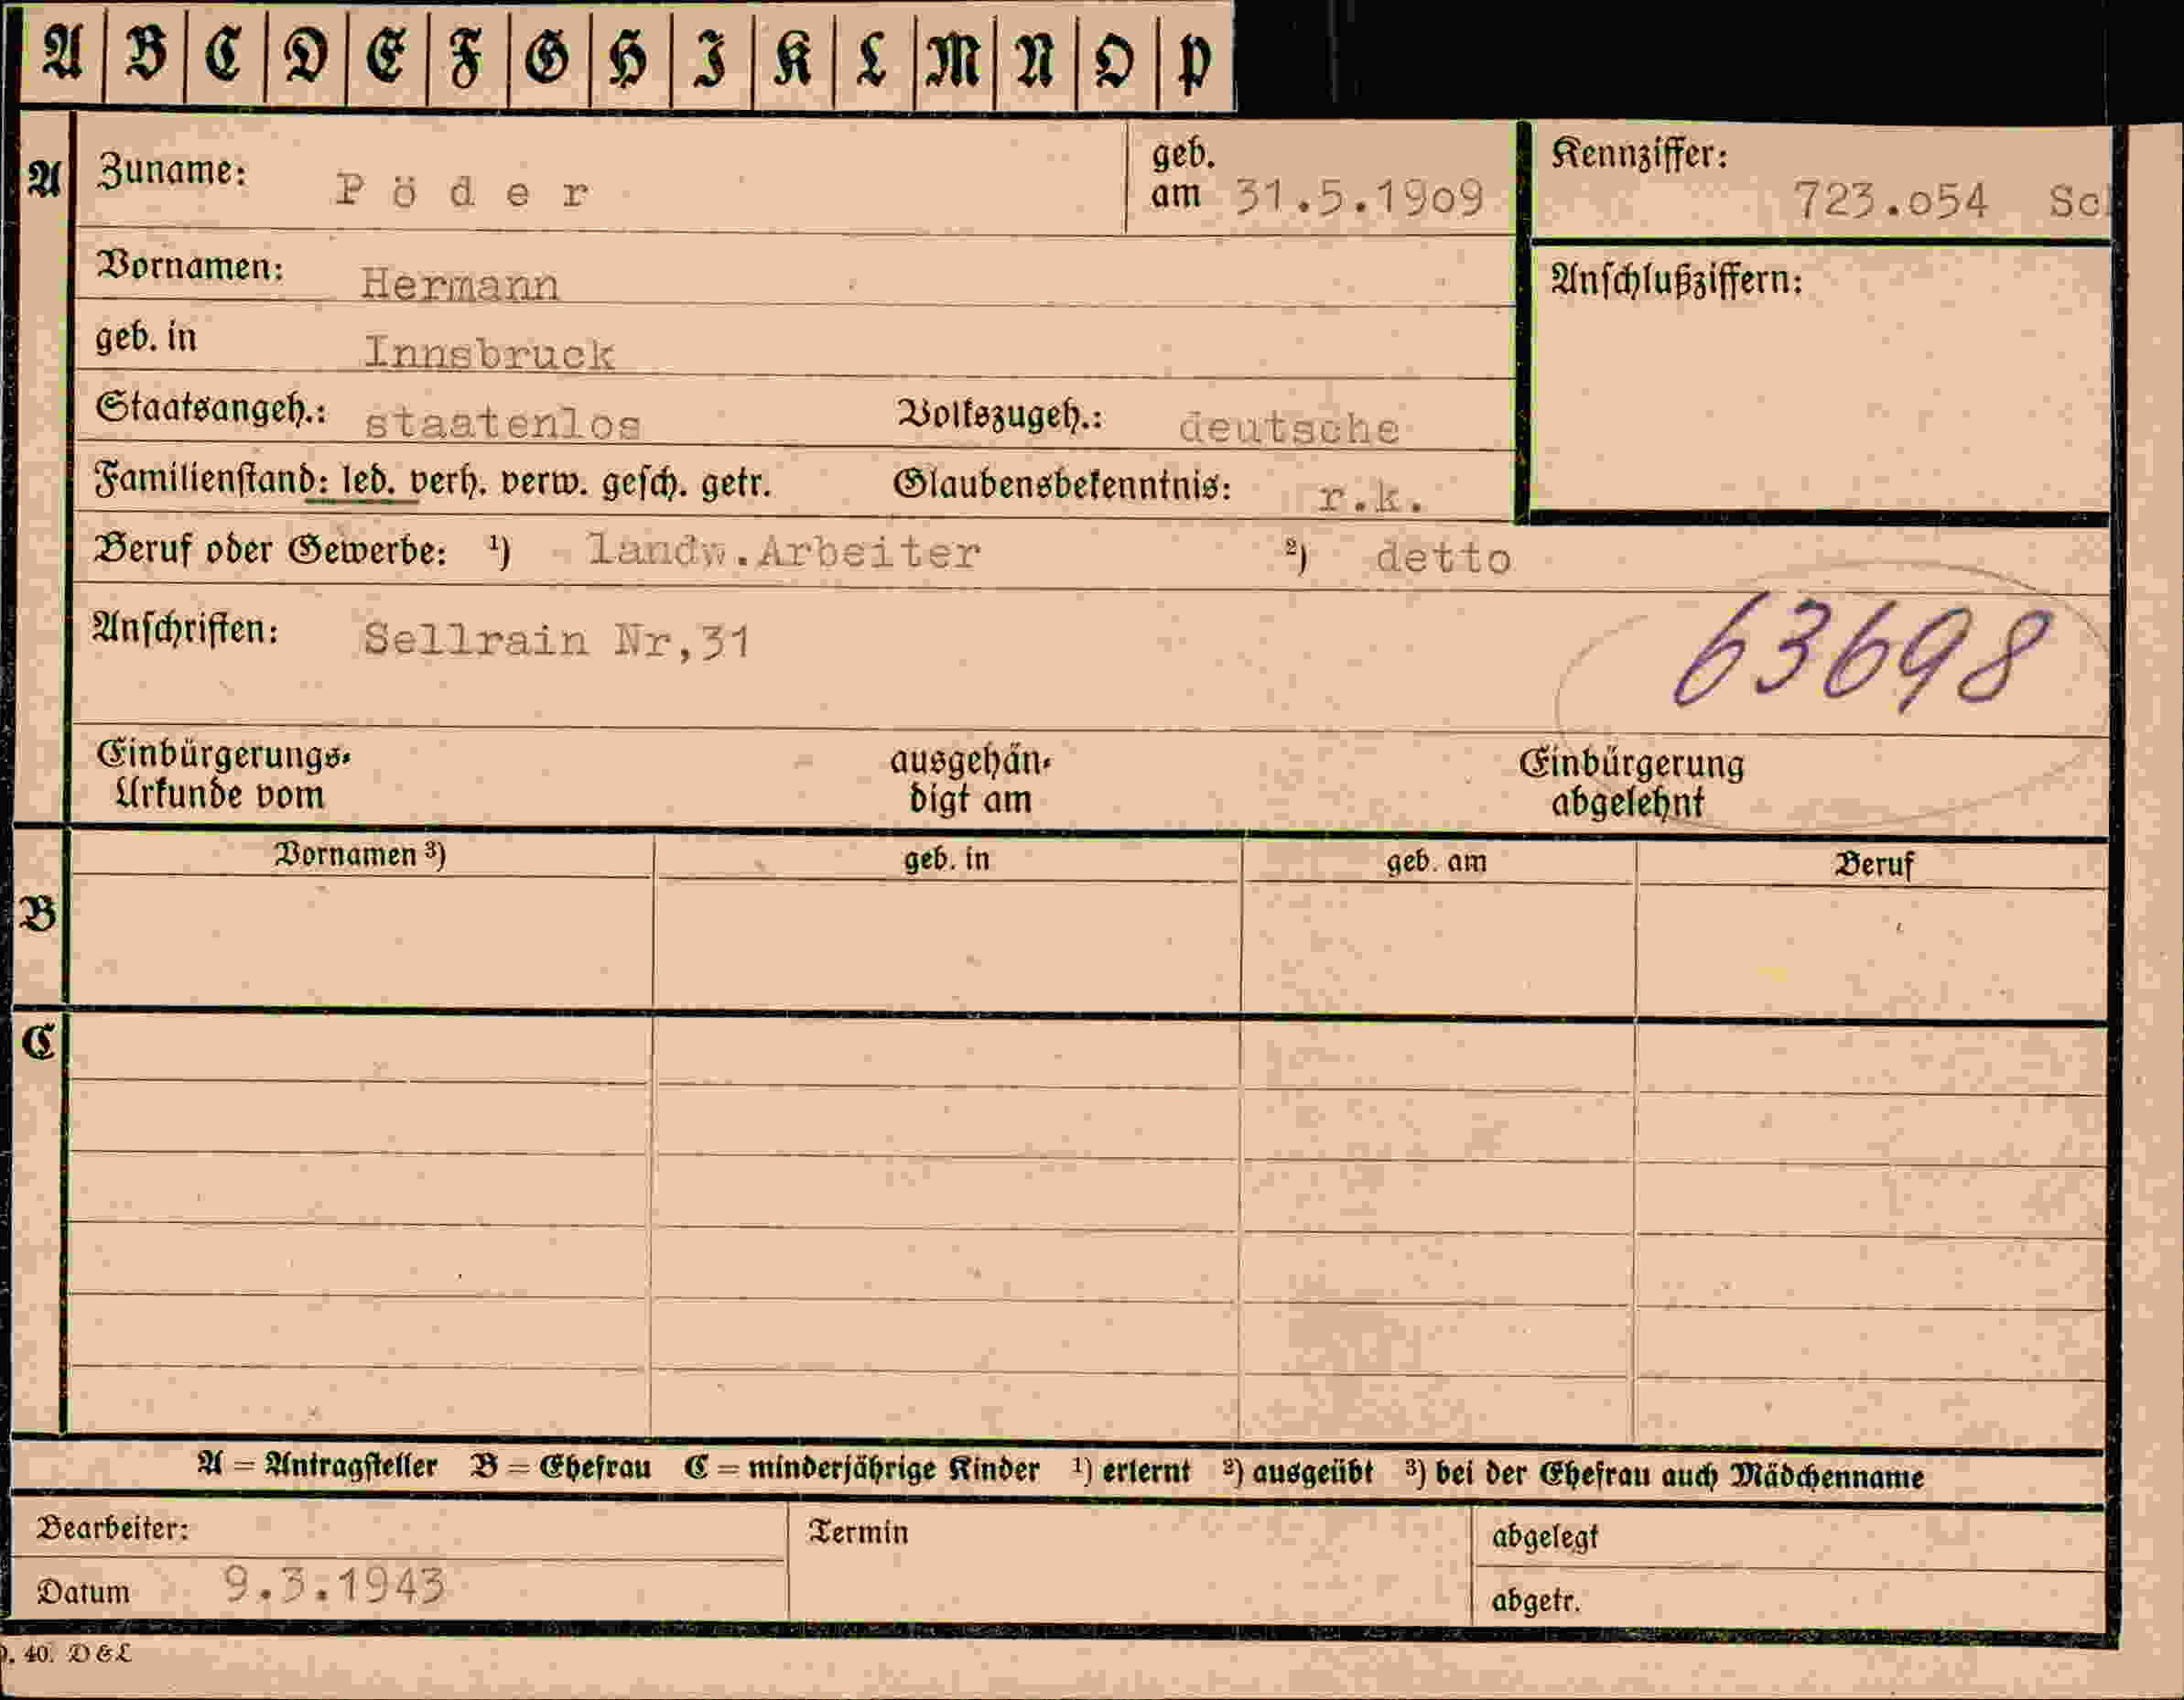 A B C D E F G H I K L M N O P
A Zuname: Pöder geb. am 31.5.1909 Kennziffer: 723.054
Vornamen: Hermann Anschlußziffern:
geb. in Innsbruck
Staatsangeh.: staatenlos Volkszugeh.: deutsche
Familienstand: led. verh. verw. gesch. getr. Glaubensbekenntnis: r.k.
Beruf oder Gewerbe: ¹) landw.Arbeiter ²) detto
Anschriften: Sellrain Nr,31 63698
Einbürgerungs-
Urkunde vom
ausgehän-
digt am
Einbürgerung
abgelehnt
B Vornamen ³) geb. in geb. am Beruf
C
A = Antragsteller B = Ehefrau C = minderjährige Kinder ¹) erlernt ²) ausgeübt ³) bei der Ehefrau auch Mädchenname
Bearbeiter: Termin abgelegt
Datum 9.3.1943 abgetr.
40. D&L